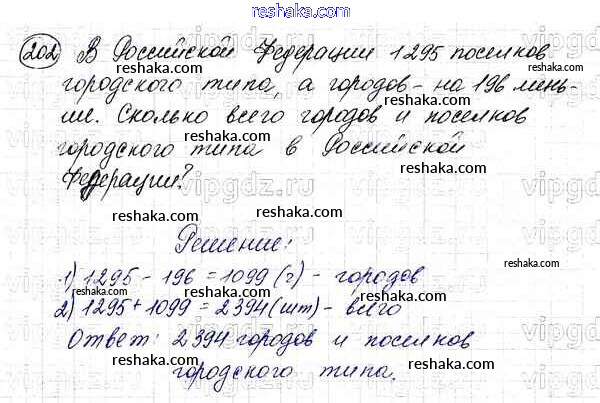 reshaka.com
202 В Российской Федерации 1295 поселков
reshaka.com
городского типа, а городов - на 196 мень-
reshaka.com
ше. Сколько всего городов и поселков
reshaka.com
городского типа в Российской
reshaka.com
Федерации?
reshaka.com
Решение:
reshaka.com
1) 1295 - 196 = 1099 (г) - городов
reshaka.com
2) 1295 + 1099 = 2394 (шт) - всего
reshaka.com
Ответ: 2394 городов и поселков
reshaka.com
городского типа.
reshaka.com
vipgdz.ru